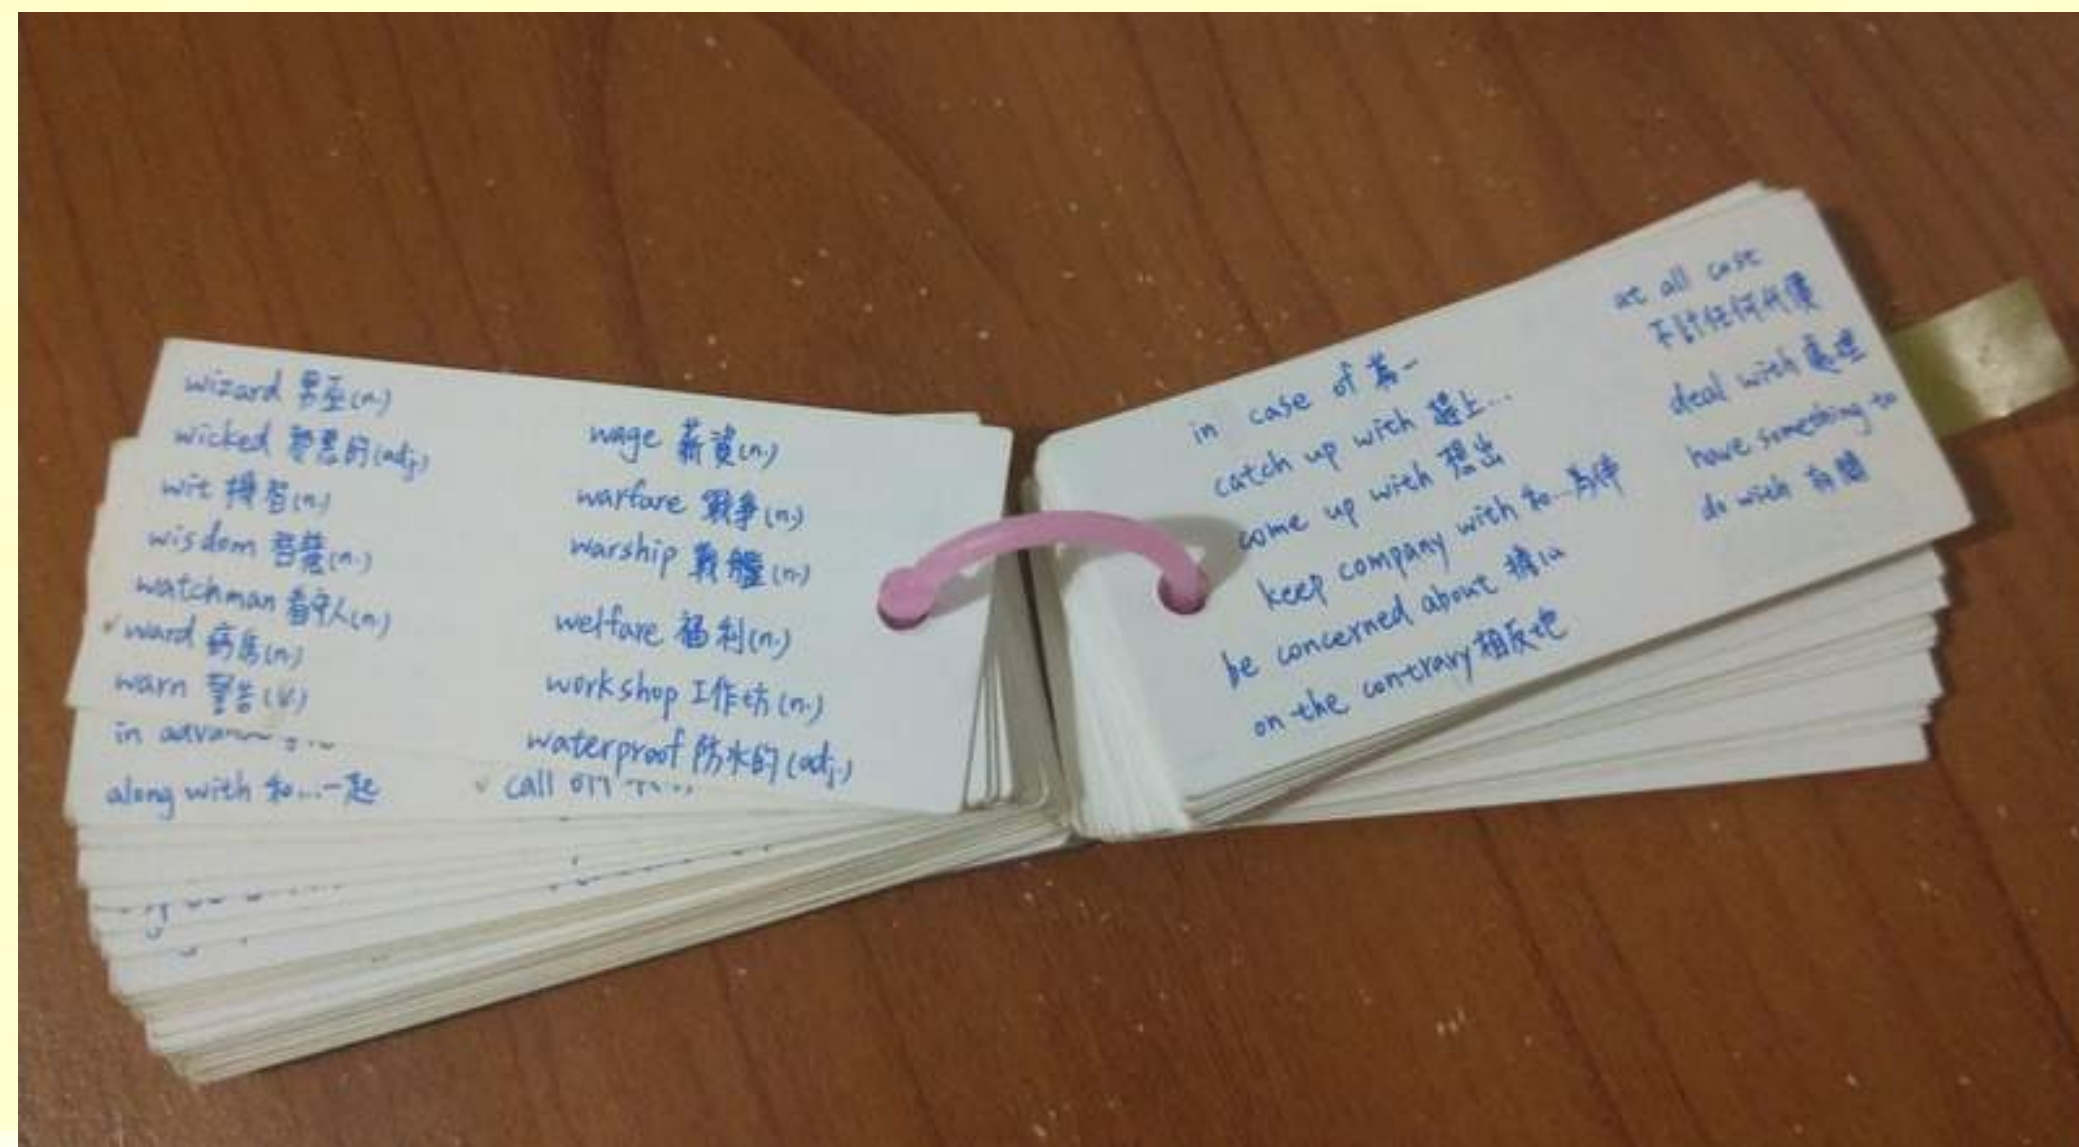 wizard 男巫(n.)
wicked 邪惡的(adj.)
wit 機智(n.)
wisdom 智慧(n.)
watchman 看守人(n.)
✓ward 病房(n.)
warn 警告(v.)
wage 薪資(n.)
warfare 戰爭(n.)
warship 戰艦(n.)
welfare 福利(n.)
workshop 工作坊(n.)
waterproof 防水的(adj.)
in
along with 和...一起
✓ call
in case of 萬一
catch up with 趕上...
come up with 想出
keep company with 和...為伴
be concerned about 擔心
on the contrary 相反地
at all cost
不計任何代價
deal with 處理
have something to
do with 有關